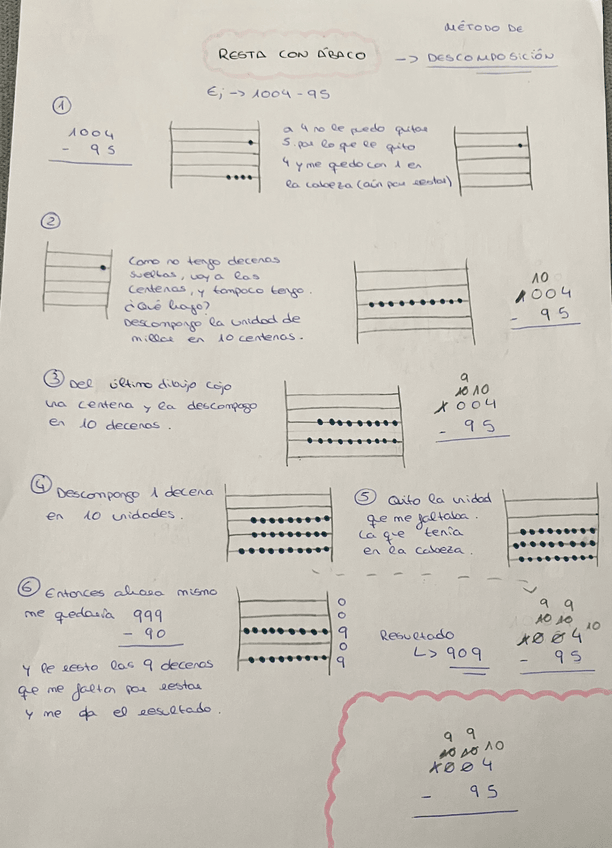 MÉTODO DE
RESTA CON ÁBACO -> DESCOMPOSICIÓN
Ej -> 1004 - 95
①
1004
- 95
a 4 no le puedo quitar
5, por lo que le quito
4 y me quedo con 1 en
la cabeza (aún por restar)
②
Como no tengo decenas
sueltas, voy a las
centenas, y tampoco tengo.
¿Qué hago?
Descompongo la unidad de
millar en 10 centenas.
10
1004
- 95
③ Del último dibujo cojo
una centena y la descompogo
en 10 decenas.
9
10 10
1004
- 95
④ Descompongo 1 decena
en 10 unidades.
⑤ Quito la unidad
que me faltaba.
La que tenía
en la cabeza.
⑥ Entonces ahora mismo
me quedaría 999
- 90
y le resto las 9 decenas
que me faltan por restar
y me da el resultado.
0
0
9
0
9
Resultado
↳ 909
9 9
10 10 10
1004
- 95
9 9
10 10 10
1004
- 95